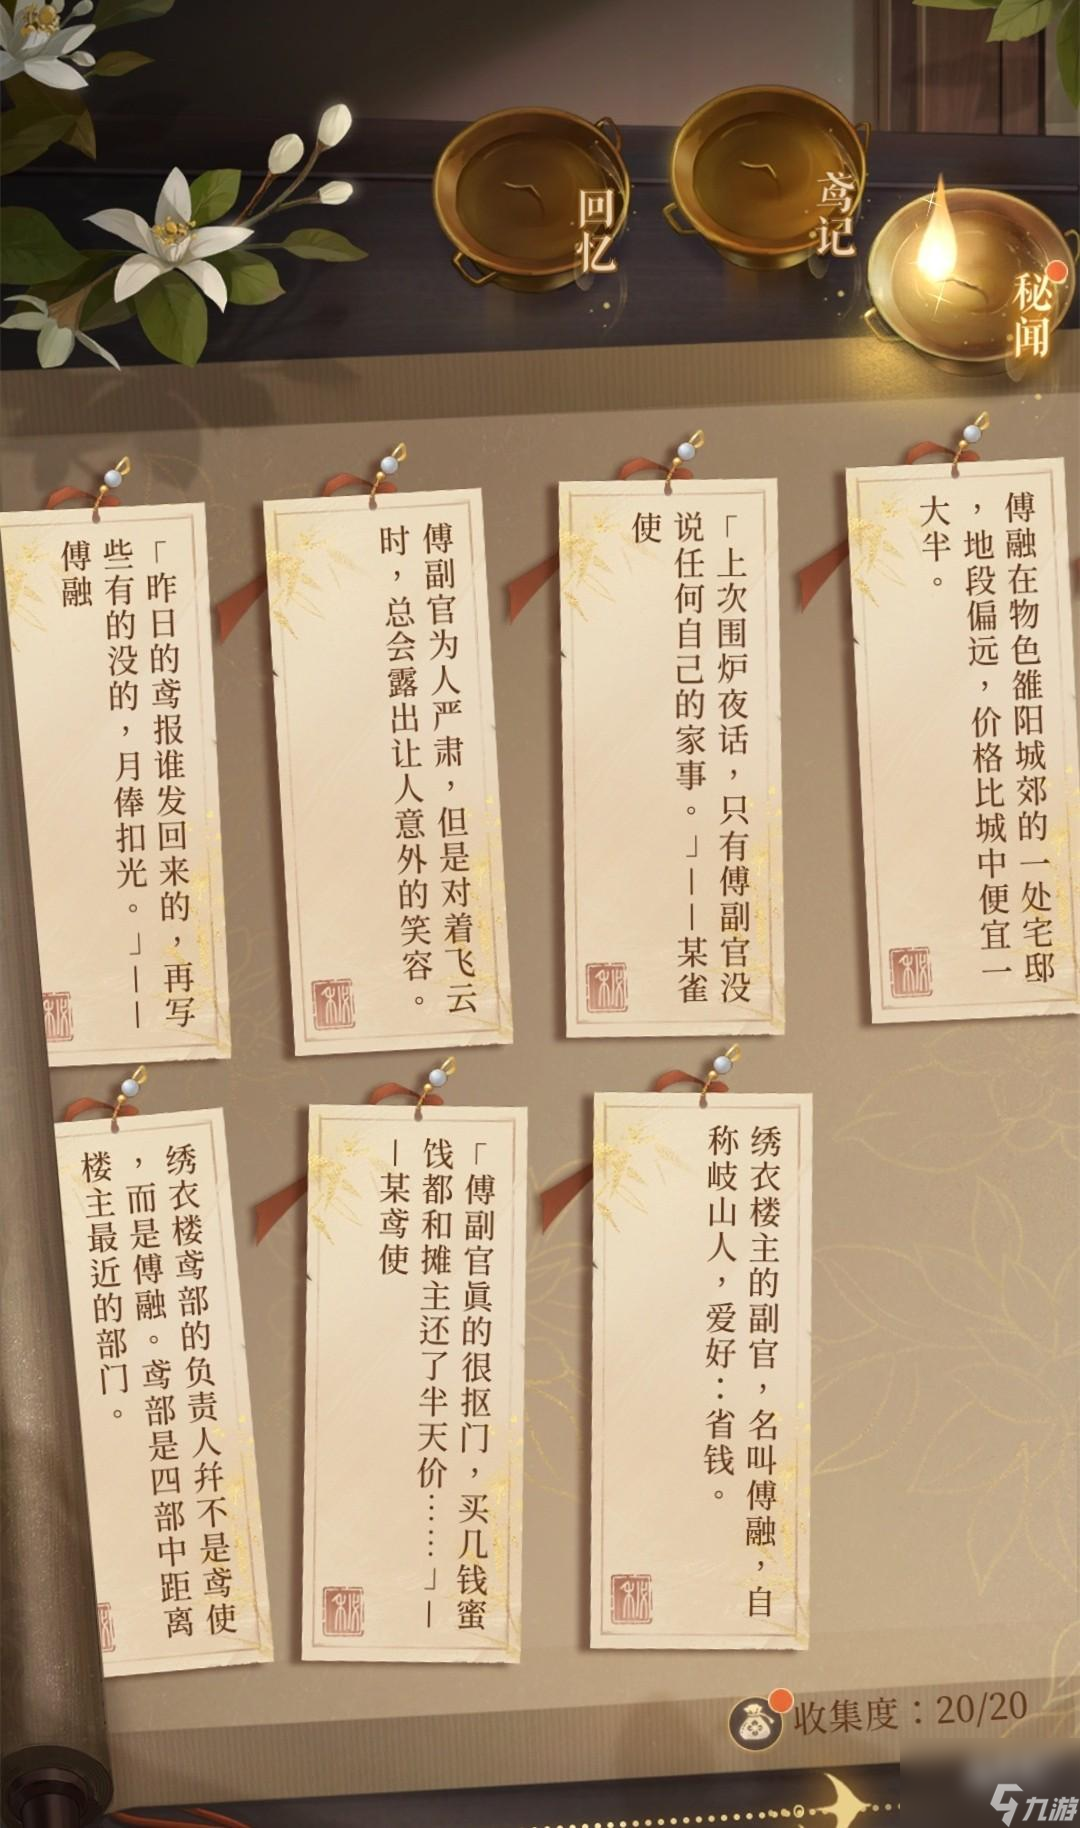 回忆
鸢记
秘闻
傅融在物色雒阳城郊的一处宅邸
，地段偏远，价格比城中便宜一
大半。
「上次围炉夜话，只有傅副官没
说任何自己的家事。」——某雀
使
傅副官为人严肃，但是对着飞云
时，总会露出让人意外的笑容。
「昨日的鸢报谁发回来的，再写
些有的没的，月俸扣光。」——
傅融
绣衣楼主的副官，名叫傅融，自
称岐山人，爱好：省钱。
「傅副官眞的很抠门，买几钱蜜
饯都和摊主还了半天价……」—
—某鸢使
绣衣楼鸢部的负责人幷不是鸢使
，而是傅融。鸢部是四部中距离
楼主最近的部门。
收集度：20/20
九游